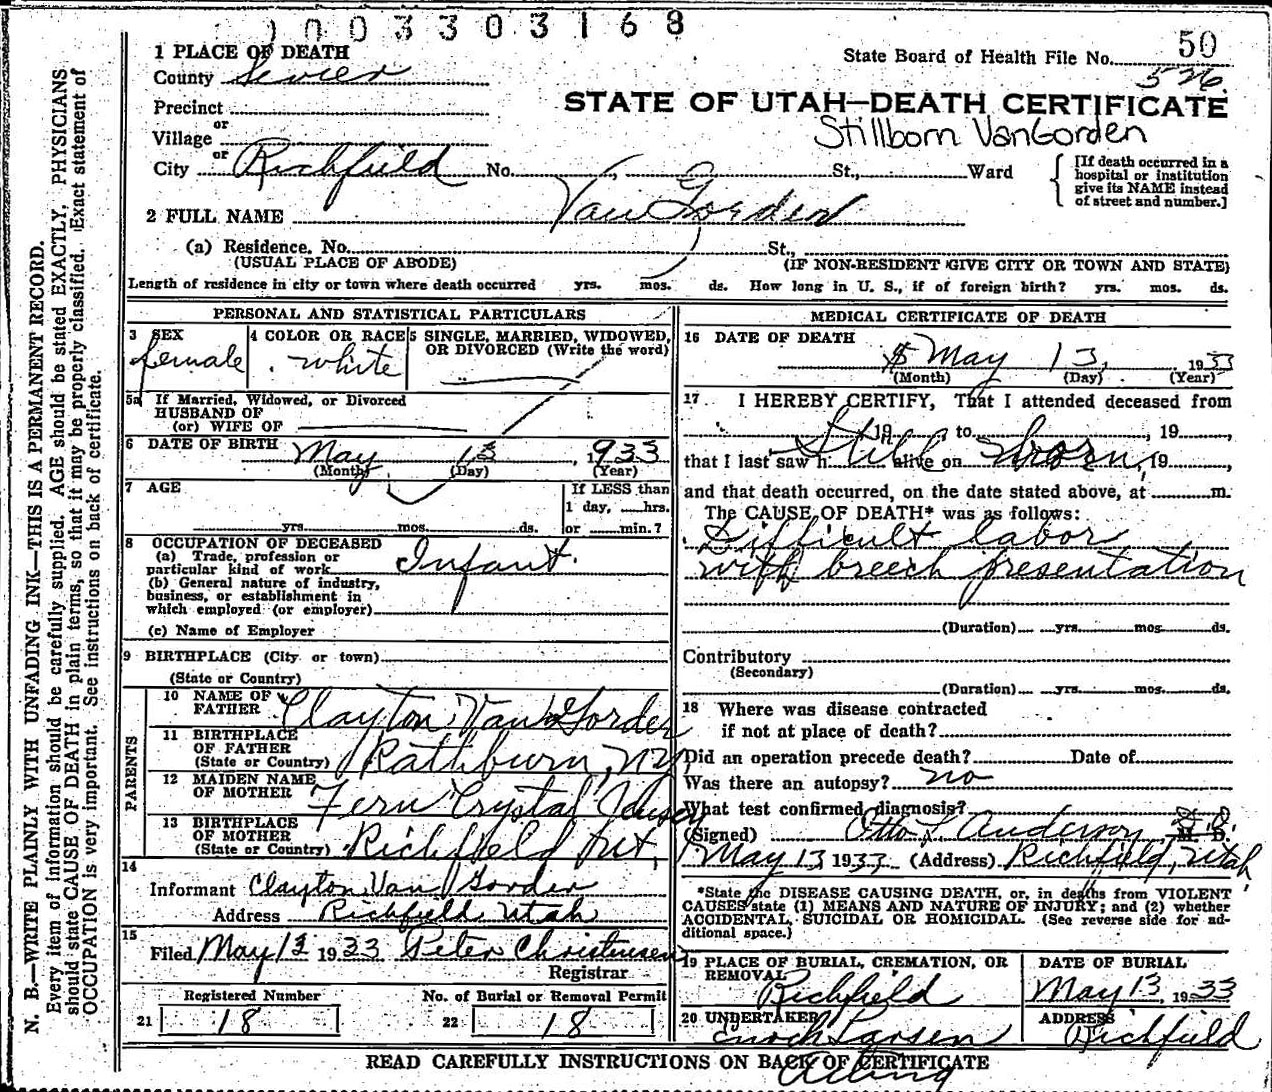 1003303168
State Board of Health File No. 50
526
1 PLACE OF DEATH
County Sevier
STATE OF UTAH—DEATH CERTIFICATE
Precinct
Stillborn VanGorden
or
Village
or
City Richfield No. St., Ward
[If death occurred in a
hospital or institution
give its NAME instead
of street and number.]
2 FULL NAME Van Gorden
(a) Residence. No. St.,
(USUAL PLACE OF ABODE) (IF NON-RESIDENT GIVE CITY OR TOWN AND STATE)
Length of residence in city or town where death occurred yrs. mos. ds. How long in U. S., if of foreign birth? yrs. mos. ds.
PERSONAL AND STATISTICAL PARTICULARS
3 SEX
female
4 COLOR OR RACE
white
5 SINGLE, MARRIED, WIDOWED,
OR DIVORCED (Write the word)
5a If Married, Widowed, or Divorced
HUSBAND OF
(or) WIFE OF
6 DATE OF BIRTH May 13, 1933
(Month) (Day) (Year)
7 AGE
yrs. mos. ds.
If LESS than
1 day, hrs.
or min.?
8 OCCUPATION OF DECEASED
(a) Trade, profession or
particular kind of work Infant.
(b) General nature of industry,
business, or establishment in
which employed (or employer)
(c) Name of Employer
9 BIRTHPLACE (City or town)
(State or Country)
PARENTS
10 NAME OF
FATHER Clayton Van Gorder
11 BIRTHPLACE
OF FATHER
(State or Country) Rathburn, NY
12 MAIDEN NAME
OF MOTHER Fern Crystal
13 BIRTHPLACE
OF MOTHER
(State or Country) Richfield Ut,
14
Informant Clayton Van Gorder
Address Richfield Utah
15
Filed May 13 1933 Peter Christensen
Registrar
Registered Number
21 18
No. of Burial or Removal Permit
22 18
MEDICAL CERTIFICATE OF DEATH
16 DATE OF DEATH
May 13, 1933
(Month) (Day) (Year)
17 I HEREBY CERTIFY, That I attended deceased from
, 19 , to , 19 ,
that I last saw h alive on , 19 ,
Still born
and that death occurred, on the date stated above, at m.
The CAUSE OF DEATH* was as follows:
Difficult labor
with breech presentation
(Duration) yrs. mos. ds.
Contributory
(Secondary)
(Duration) yrs. mos. ds.
18 Where was disease contracted
if not at place of death?
Did an operation precede death? Date of
Was there an autopsy? no
What test confirmed diagnosis?
(Signed) Otto L. Anderson, M. D.
May 13 1933 (Address) Richfield, Utah
*State the DISEASE CAUSING DEATH, or, in deaths from VIOLENT
CAUSES state (1) MEANS AND NATURE OF INJURY; and (2) whether
ACCIDENTAL, SUICIDAL OR HOMICIDAL. (See reverse side for ad-
ditional space.)
19 PLACE OF BURIAL, CREMATION, OR
REMOVAL
Richfield
DATE OF BURIAL
May 13, 1933
20 UNDERTAKER
Enoch Larsen
Acting
ADDRESS
Richfield
READ CAREFULLY INSTRUCTIONS ON BACK OF CERTIFICATE
N. B.—WRITE PLAINLY WITH UNFADING INK—THIS IS A PERMANENT RECORD.
Every item of information should be carefully supplied. AGE should be stated EXACTLY. PHYSICIANS
should state CAUSE OF DEATH in plain terms, so that it may be properly classified. Exact statement of
OCCUPATION is very important. See instructions on back of certificate.